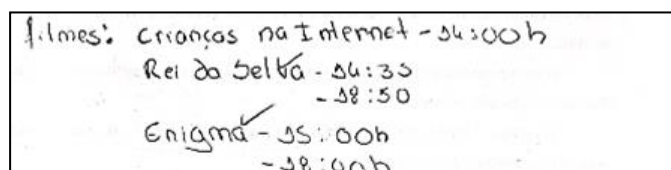 filmes: Crianças na Internet - 14:00h
Rei da Selva - 14:35
- 18:50
Enigma - 15:00h
- 18:00h